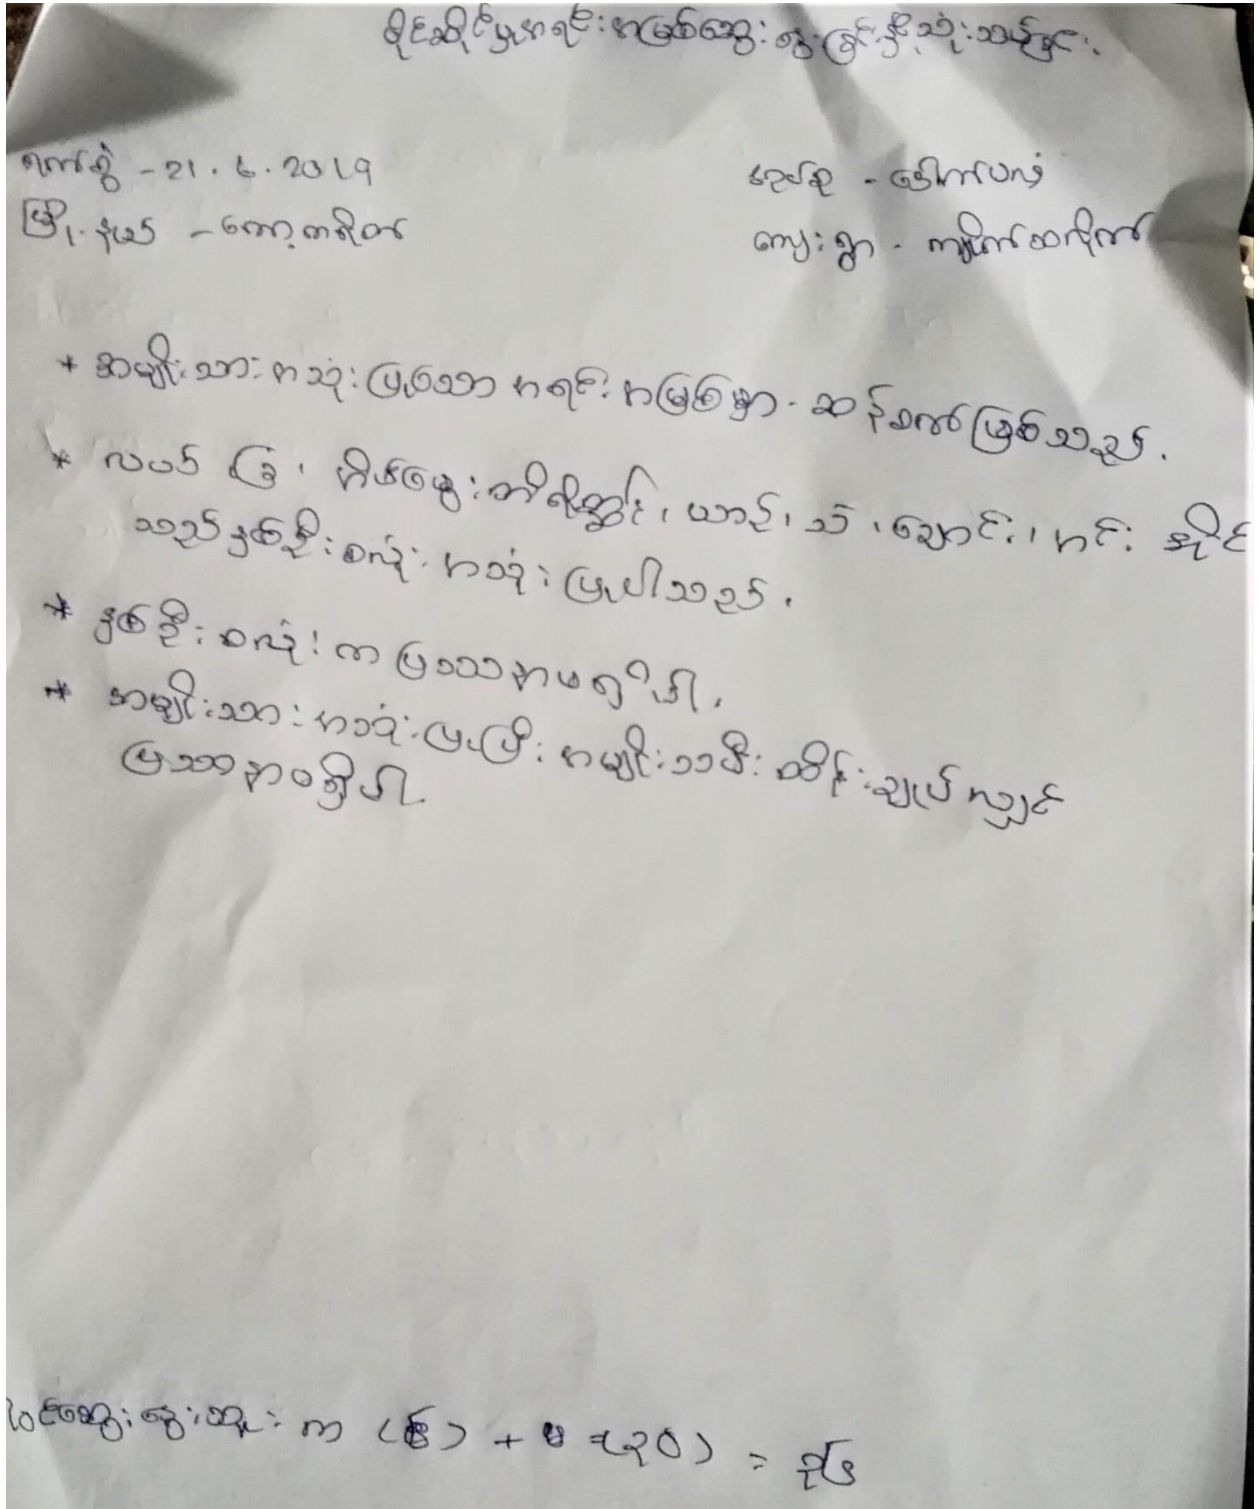 ပိုင်ဆိုင်မှုအရင်းအမြစ်ဆွေးနွေးခြင်းနှင့်သုံးသပ်ခြင်း.
ရက်စွဲ - 21.6.2019
အုပ်စု - ခေါက်ပလှံ
မြို့နယ် - ကော့ကရိတ်
ကျေးရွာ - ကျိုက်ထလိုက်
* အမျိုးသားအသုံးပြုသောအရင်းအမြစ်မှာ ဆန်စက်ဖြစ်သည်.
* လယ် ခြံ၊ အိမ်မွေးတိရိစ္ဆာန်၊ ယာဉ်၊ သိမ်၊ ချောင်း၊ အင်း အိုင်
သည်နှစ်ဦးစလုံးအသုံးပြုပါသည်.
* နှစ်ဦးစလုံးကပြဿနာမရှိပါ.
* အမျိုးသားအသုံးပြုပြီးအမျိုးသမီးထိန်းချုပ်လျှင်
ပြဿနာမရှိပါ.
ပါဝင်ဆွေးနွေးသူ: က + မ (၃၀) =